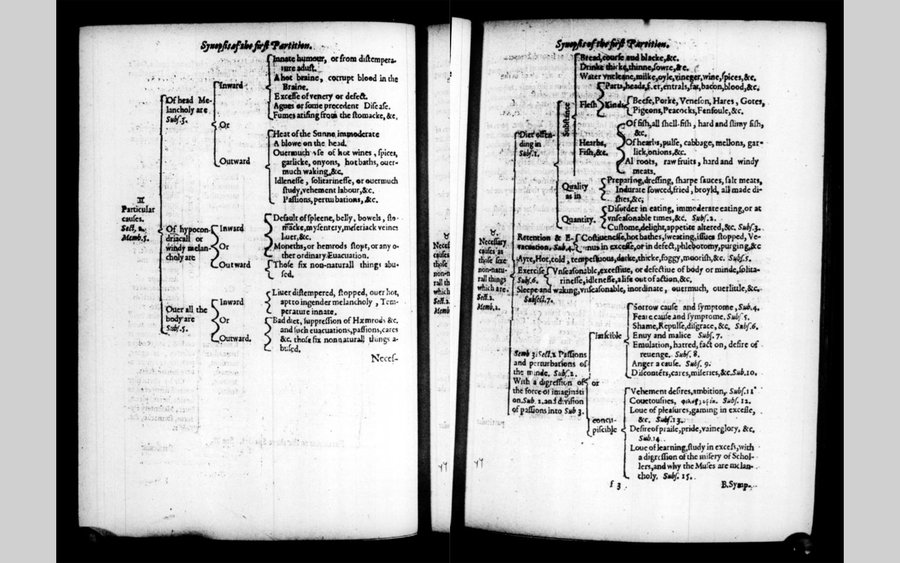 Synopsis of the first Partition.
Innate humour, or from distempera-
ture adust.
A hot braine, corrupt blood in the
Braine.
Inward
Excesse of venery or defect.
Agues or some precedent Disease.
Fumes arising from the stomacke, &c.
Of head Me-
lancholy are
Subs. 5.
Or
Heat of the Sunne immoderate
A blowe on the head.
Ouermuch vse of hot wines, spices,
Outward
garlicke, onyons, hot bathes, ouer-
much waking, &c.
Idlenesse, solitarinesse, or ouermuch
study, vehement labour, &c.
Passions, perturbations, &c.
Particular
causes.
Sect. 2.
Memb. 5.
Of hypocon-
driacall or
windy melan-
choly are
Inward
Default of spleene, belly, bowels, sto-
macke, mysentery, meseriack veines
liuer, &c.
Or
Moneths, or hemrods stopt, or any o-
ther ordinary Euacuation.
Outward
Those six non-naturall things abu-
sed.
Ouer all the
body are
Subs. 5.
Inward
Liuer distempered, stopped, ouer hot,
apt to ingender melancholy, Tem-
perature innate.
Or
Bad diet, suppression of Hæmrods &c.
and such euacuations, passions, cares
Outward.
&c. those six nonnaturall things a-
bused.
Neces-
Synopsis of the first Partition.
Bread, course and blacke, &c.
Drinke thicke, thinne, sowre, &c.
Water vncleane, milke, oyle, vineger, wine, spices, &c.
Substance
Flesh
Parts, heads, feet, entrals, fat, bacon, blood, &c.
Kinds
Beefe, Porke, Venison, Hares, Gotes,
Pigeons, Peacocks, Fenfoule, &c.
Diet offen-
ding in
Subs. 1.
Hearbs,
Fish, &c.
Of fish, all shell-fish, hard and slimy fish,
&c.
Of hearbs, pulse, cabbage, mellons, gar-
lick, onions, &c.
Al roots, raw fruits, hard and windy
meats.
Quality
as in
Preparing, dressing, sharpe sauces, salt meats,
Indurate sowced, fried, broyld, all made di-
shes, &c;
Quantity.
Disorder in eating, immoderate eating, or at
vnseasonable times, &c. Subs. 2.
Custome, delight, appetite altered, &c. Subs. 3.
Necessary
causes as
those sixe
non-natu-
rall things
which are
Sect. 2.
Memb. 2.
Retention & E-
vacuation, Sub. 4.
Costiuenesse, hot bathes, sweating, issues stopped, Ve-
nus in excesse, or in defect, phlebotomy, purging, &c
Ayre, Hot, cold, tempestuous, darke, thicke, foggy, moorish, &c. Subs. 5.
Exercise
Subs. 6.
Vnseasonable, excessiue, or defectiue of body or minde, solita-
rinesse, idlenesse, a life out of action, &c.
Sleepe and waking, vnseasonable, inordinate, ouermuch, ouerlittle, &c.
Subsect. 7.
Memb 3. Sect. 2. Passions
and perturbations of
the minde, Subs. 2.
With a digression of
the force of imaginati
on. Sub. 2. and diuision
of passions into Sub 3.
irascible
Sorrow cause and symptome, Sub. 4.
Feare cause and symptome. Subs. 5.
Shame, Repulse, disgrace, &c, Subs. 6.
Enuy and malice Subs. 7.
Emulation, hatred, faction, desire of
reuenge. Subs. 8.
Anger a cause. Subs. 9.
Discontets, cares, miseries, &c. Sub. 10.
or
concu-
piscible
Vehement desires, ambition, Subs. 11
Couetousnes, Subs. 12.
Loue of pleasures, gaming in excesse,
&c, Subs. 13.
Desire of praise, pride, vaineglory, &c,
Sub. 14.
Loue of learning, study in excess, with
a digression of the misery of Schol-
lers, and why the Muses are melan-
choly. Subs. 15.
f 3
B. Symp.